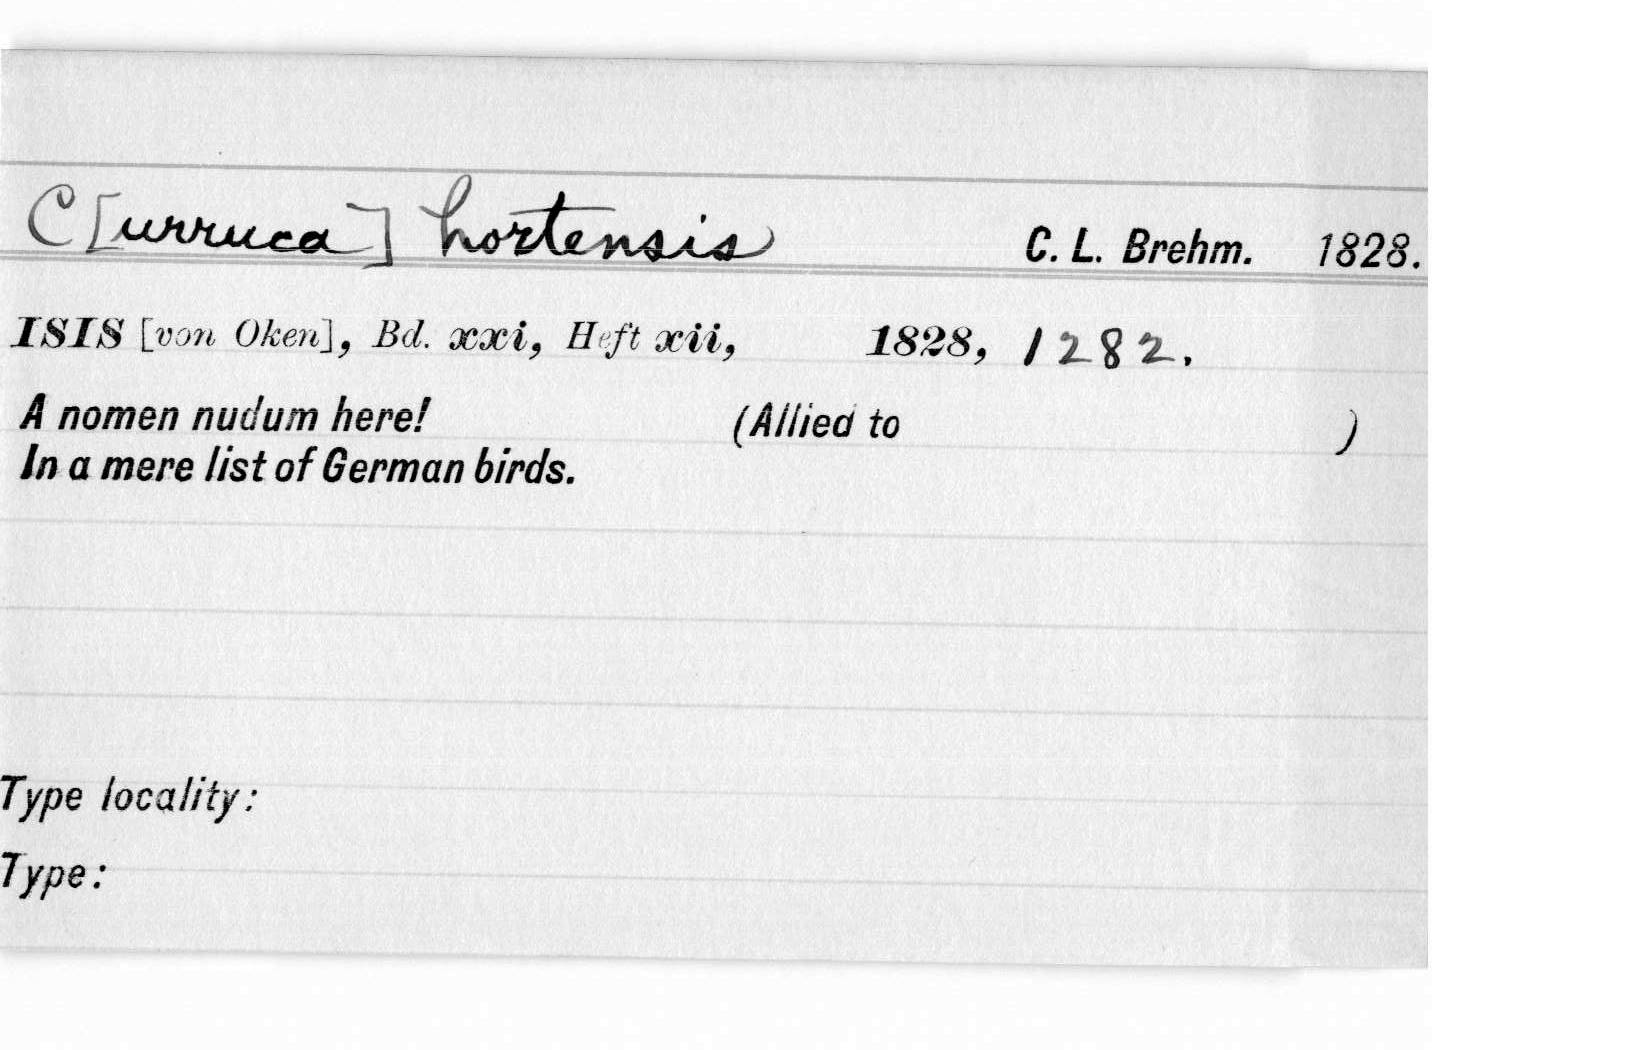 C[urruca] hortensis C. L. Brehm. 1828.
ISIS [von Oken], Bd. xxi, Heft xii, 1828, 1282.
A nomen nudum here! (Allied to )
In a mere list of German birds.
Type locality:
Type: